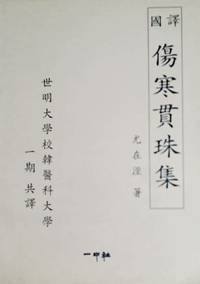 國譯
傷寒貫珠集
尤在涇 著
世明大學校韓醫科大學
一期 共譯
一中社